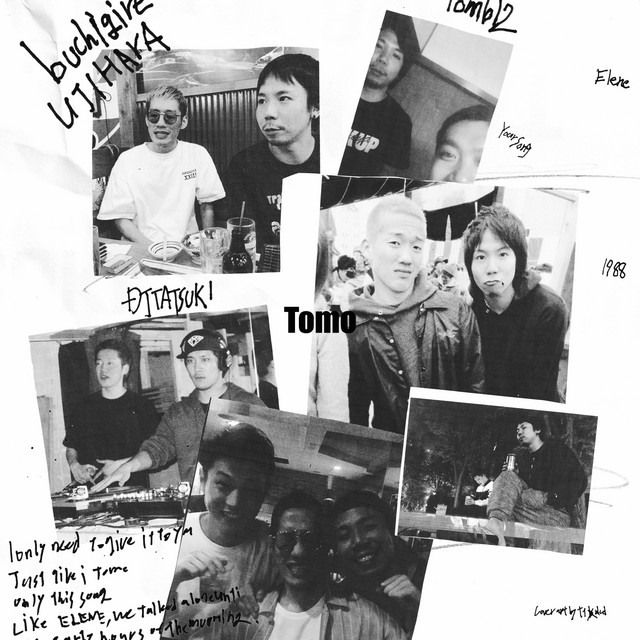 buch1gire
UJIHARA
TOMb12
Elene
Your Song
1988
DJTATSUKI
Tomo
I only need to give it to ya
Just like i tomo
only this song
Like ELENE, we talked alone until
hours of the morning.
Cover art by